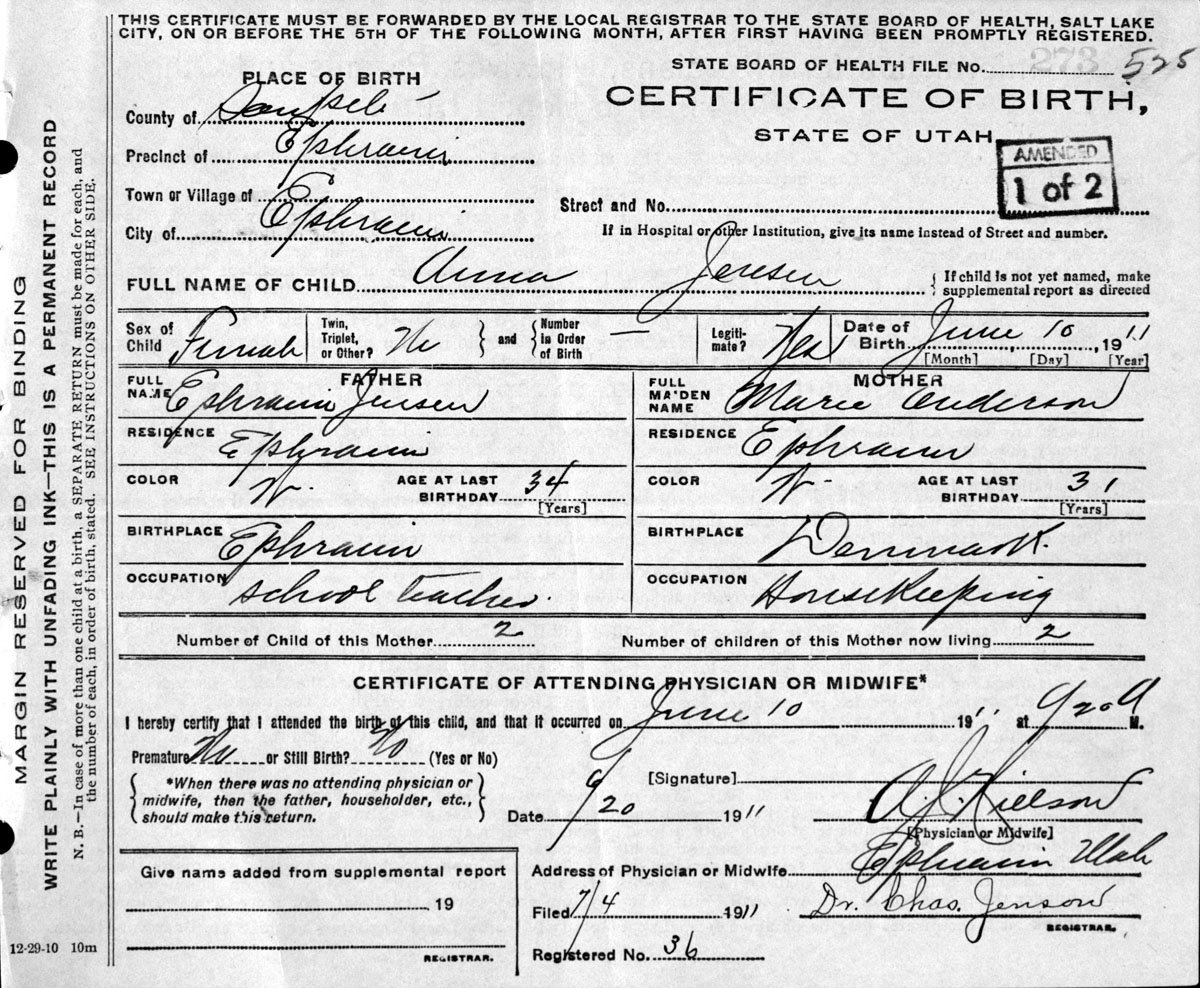 THIS CERTIFICATE MUST BE FORWARDED BY THE LOCAL REGISTRAR TO THE STATE BOARD OF HEALTH, SALT LAKE
CITY, ON OR BEFORE THE 5TH OF THE FOLLOWING MONTH, AFTER FIRST HAVING BEEN PROMPTLY REGISTERED.
STATE BOARD OF HEALTH FILE No. 273 525
PLACE OF BIRTH
CERTIFICATE OF BIRTH,
STATE OF UTAH
AMENDED
1 of 2
County of
Precinct of Ephraim
Town or Village of
City of Ephraim
Street and No.
If in Hospital or other Institution, give its name instead of Street and number.
FULL NAME OF CHILD Anna Jensen
{ If child is not yet named, make
supplemental report as directed
Sex of Child Female
Twin, Triplet, or Other? No } and { Number In Order of Birth —
Legitimate? Yes
Date of Birth June 10, 1911
[Month] [Day] [Year]
FATHER
FULL NAME Ephraim Jensen
RESIDENCE Ephraim
COLOR W. AGE AT LAST BIRTHDAY 34
[Years]
BIRTHPLACE Ephraim
OCCUPATION School teacher
MOTHER
FULL MAIDEN NAME Marie Anderson
RESIDENCE Ephraim
COLOR W AGE AT LAST BIRTHDAY 31
[Years]
BIRTHPLACE Denmark.
OCCUPATION HouseKeeping
Number of Child of this Mother 2 Number of children of this Mother now living 2
CERTIFICATE OF ATTENDING PHYSICIAN OR MIDWIFE*
I hereby certify that I attended the birth of this child, and that it occurred on June 10 1911 at 920 A M.
Premature No or Still Birth? No (Yes or No)
{ *When there was no attending physician or
midwife, then the father, householder, etc.,
should make this return. }
[Signature]
[Physician or Midwife]
Date 20 1911
Address of Physician or Midwife Ephraim Utah
Filed 7/4 1911 Dr. Chas. Jenson
REGISTRAR.
Registered No. 36
Give name added from supplemental report
19
REGISTRAR.
12-29-10 10m
MARGIN RESERVED FOR BINDING
WRITE PLAINLY WITH UNFADING INK—THIS IS A PERMANENT RECORD
N. B.—In case of more than one child at a birth, a SEPARATE RETURN must be made for each, and
the number of each, in order of birth, stated. SEE INSTRUCTIONS ON OTHER SIDE.